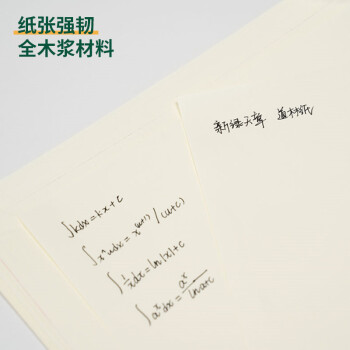 纸张强韧
全木浆材料
新绿天章 道林纸
∫kdx=kx+c
∫xⁿdx=x^(n+1)/(u+c)
∫1/x dx=ln|x|+c
∫aˣdx=aˣ/lna+c